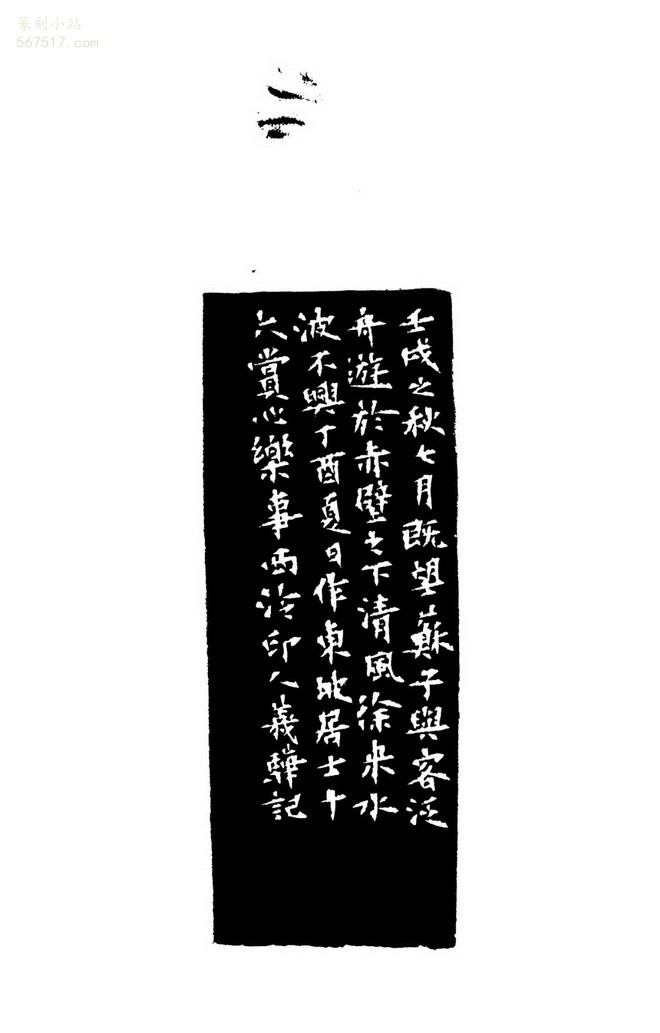 篆刻小站
567517.com
壬戌之秋七月既望蘇子與客泛
舟遊於赤壁之下清風徐来水
波不興丁酉夏日作東坡居士十
六賞心樂事西泠印人義驊記